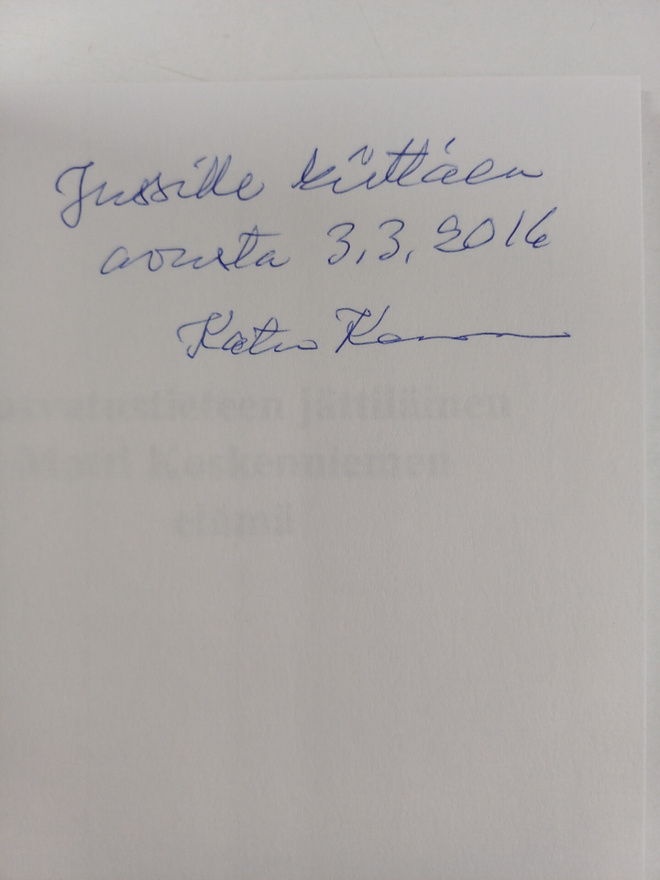 Jussille kiittäen
avusta 3.3.2016
Katri
Kasvatustieteen jättiläinen
Matti Koskenniemen
elämä